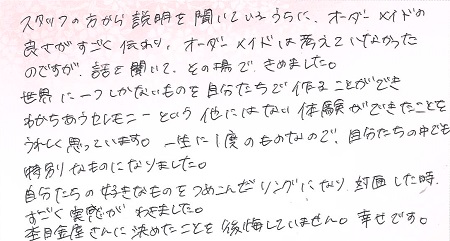 スタッフの方から説明を聞いているうちに、オーダーメイドの
良さがすごく伝わり、オーダーメイドは考えていなかった
のですが、話を聞いて、その場できめました。
世界に一つしかないものを自分たちで作ることができ
わかちあうセレモニーという他にはない体験ができたことを
うれしく思っています。一生に1度のものなので、自分たちの中でも
特別なものになりました。
自分たちの好きなものをつめこんだリングになり、対面した時、
すごく実感がわきました。
杢目金屋さんに決めたことを後悔していません。幸せです。